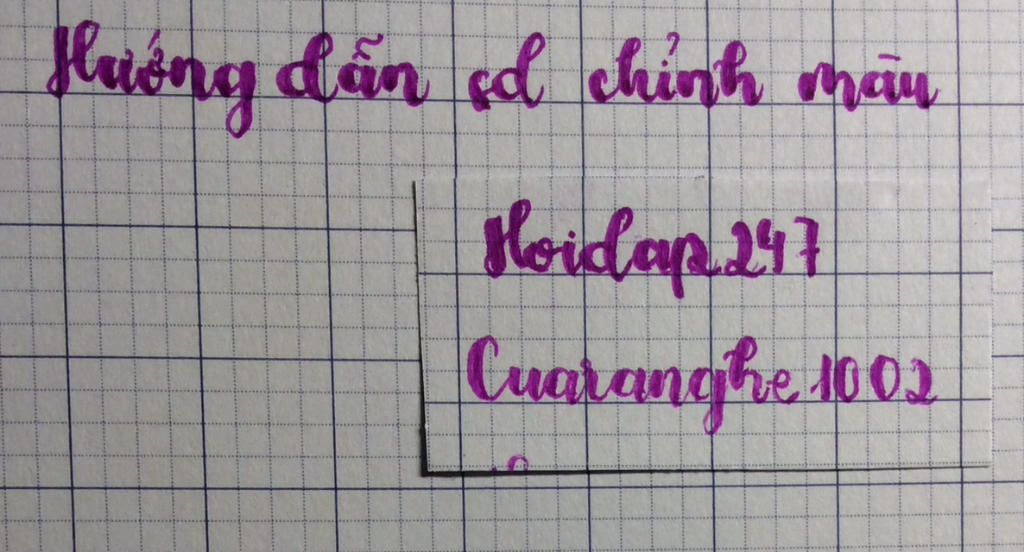 Hướng dẫn sd chỉnh màu
Hoidap247
Cuaranghe1002